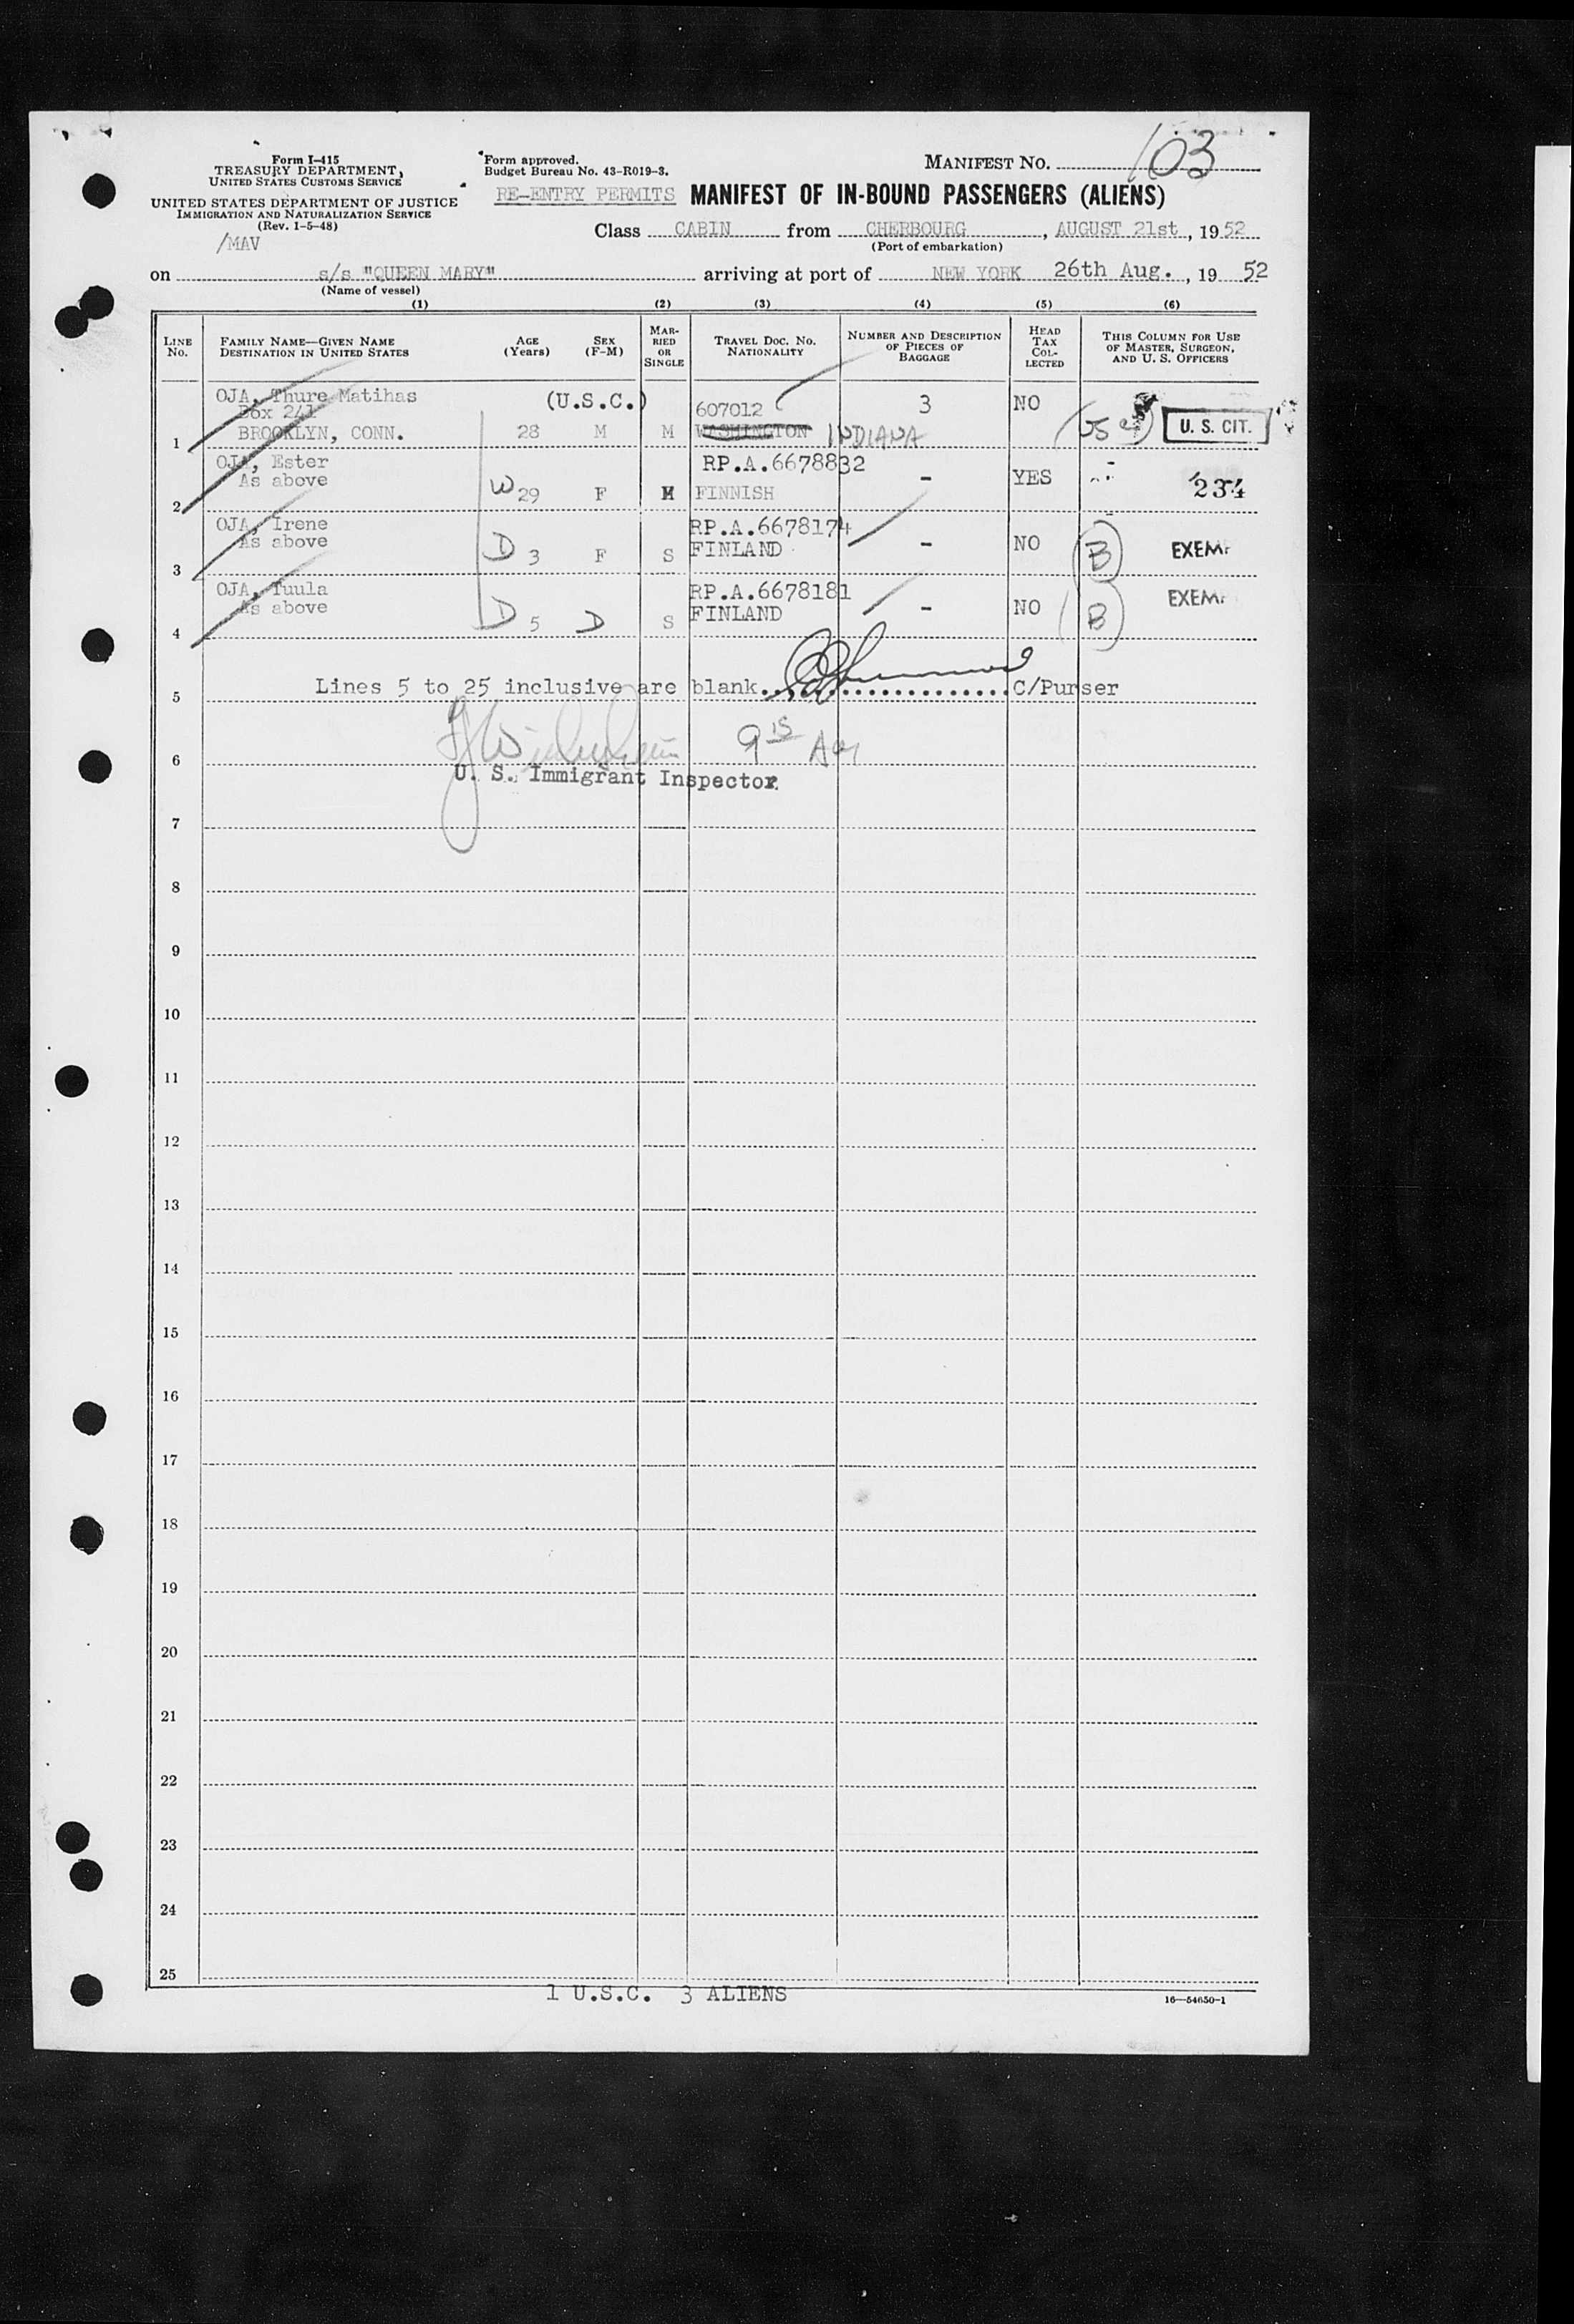 Form I-415
TREASURY DEPARTMENT,
UNITED STATES CUSTOMS SERVICE
UNITED STATES DEPARTMENT OF JUSTICE
IMMIGRATION AND NATURALIZATION SERVICE
(Rev. 1-5-48)
/MAV
Form approved.
Budget Bureau No. 43-R019-3.
MANIFEST NO. 103
RE-ENTRY PERMITS MANIFEST OF IN-BOUND PASSENGERS (ALIENS)
Class CABIN from CHERBOURG, AUGUST 21st, 1952
(Port of embarkation)
on s/s "QUEEN MARY" arriving at port of NEW YORK 26th Aug., 19 52
(Name of vessel)
(1) (2) (3) (4) (5) (6)
LINE No. FAMILY NAME—GIVEN NAME DESTINATION IN UNITED STATES AGE (Years) SEX (F-M) MARRIED OR SINGLE TRAVEL DOC. NO. NATIONALITY NUMBER AND DESCRIPTION OF PIECES OF BAGGAGE HEAD TAX COLLECTED THIS COLUMN FOR USE OF MASTER, SURGEON, AND U. S. OFFICERS
OJA, Thure Matihas (U.S.C.) 607012 3 NO
Box 241
1 BROOKLYN, CONN. 28 M M WASHINGTON INDIANA USC U. S. CIT.
OJA, Ester RP.A.6678832 - YES
As above
2 W 29 F M FINNISH 234
OJA, Irene RP.A.6678174
As above
3 D 3 F S FINLAND - NO B EXEM
OJA, Tuula RP.A.6678181
As above
4 D 5 D S FINLAND - NO B EXEM
5 Lines 5 to 25 inclusive are blank..................C/Purser
6 9 15 AM
U. S. Immigrant Inspector
7
8
9
10
11
12
13
14
15
16
17
18
19
20
21
22
23
24
25
1 U.S.C. 3 ALIENS
16—54650-1